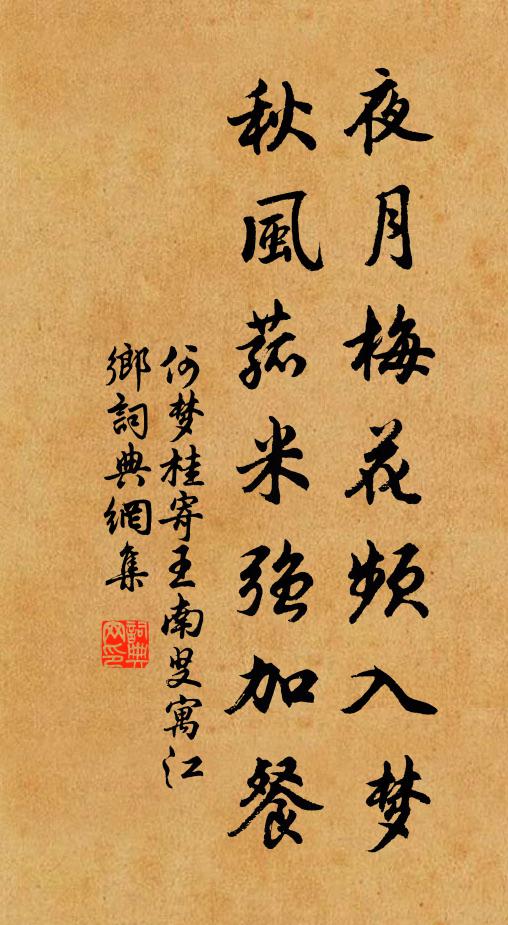 夜月梅花频入梦
秋風菰米强加餐
何梦桂寄王南叟寓江
鄉詞典網集
詞典
网印